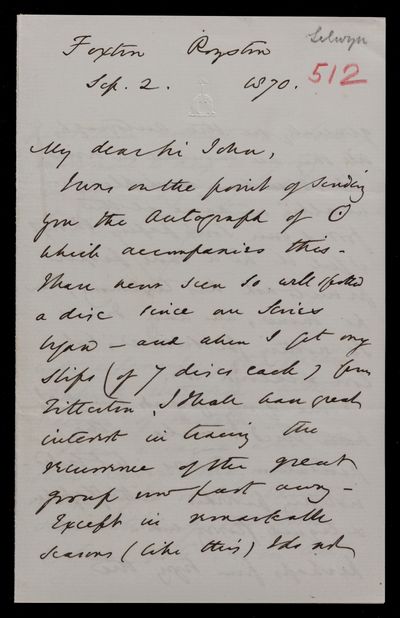 Selwyn
512
Foxton Royston
Sep. 2. 1870.
My dear Sir John,
I was on the point of sending
you the Autograph of ☉
which accompanies this.
I have never seen so well spotted
a disc since our Series
began – and when I get my
slips (of 7 discs each) from
Titterton, I shall have great
interest in tracing the
recurrence of the great
group now past away –
Except in remarkable
seasons (like this) I do not